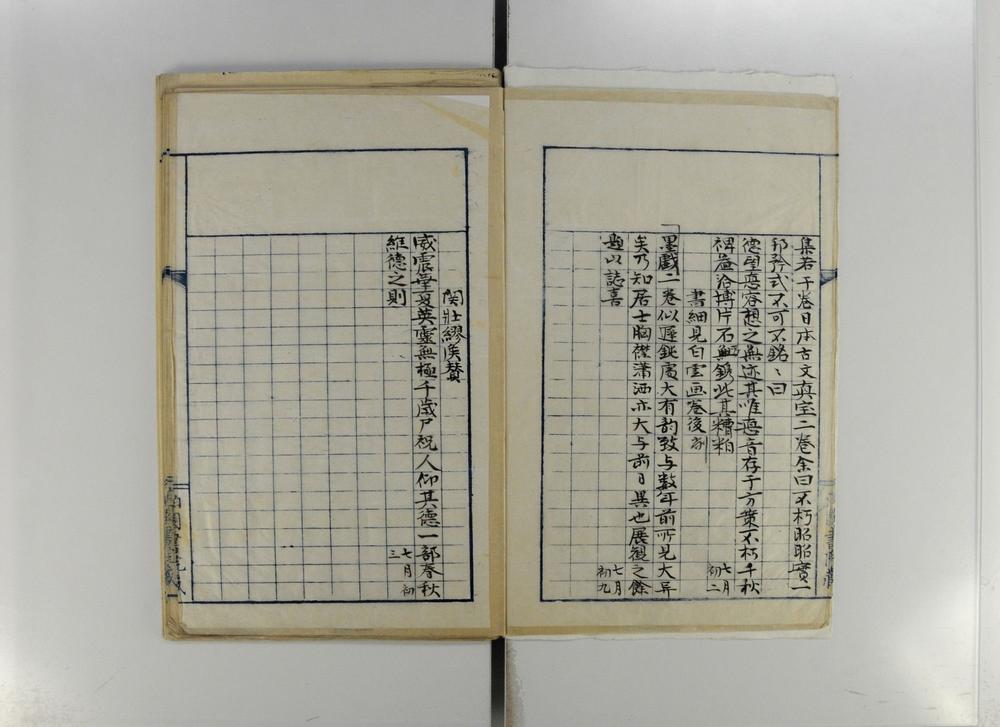 集若干卷日本古文真宝二卷余曰不朽昭昭實一
邦矜式不可不銘〻曰
德望悳容想之無迹其唯悳音存于方䇿不朽千秋
裨益洽博片石無鐫此其糟粕 七月初二
書細見白雲画卷後
「墨戲二卷似遲鈍處大有韵致与數年前所見大异
矣乃知居士胸襟瀟洒亦大与前日異也展観之餘
題以誌喜 七月初九
関壯繆侯賛
威震華夏英靈無極千歲尸祝人仰其德一部春秋
維德之則 七月初三